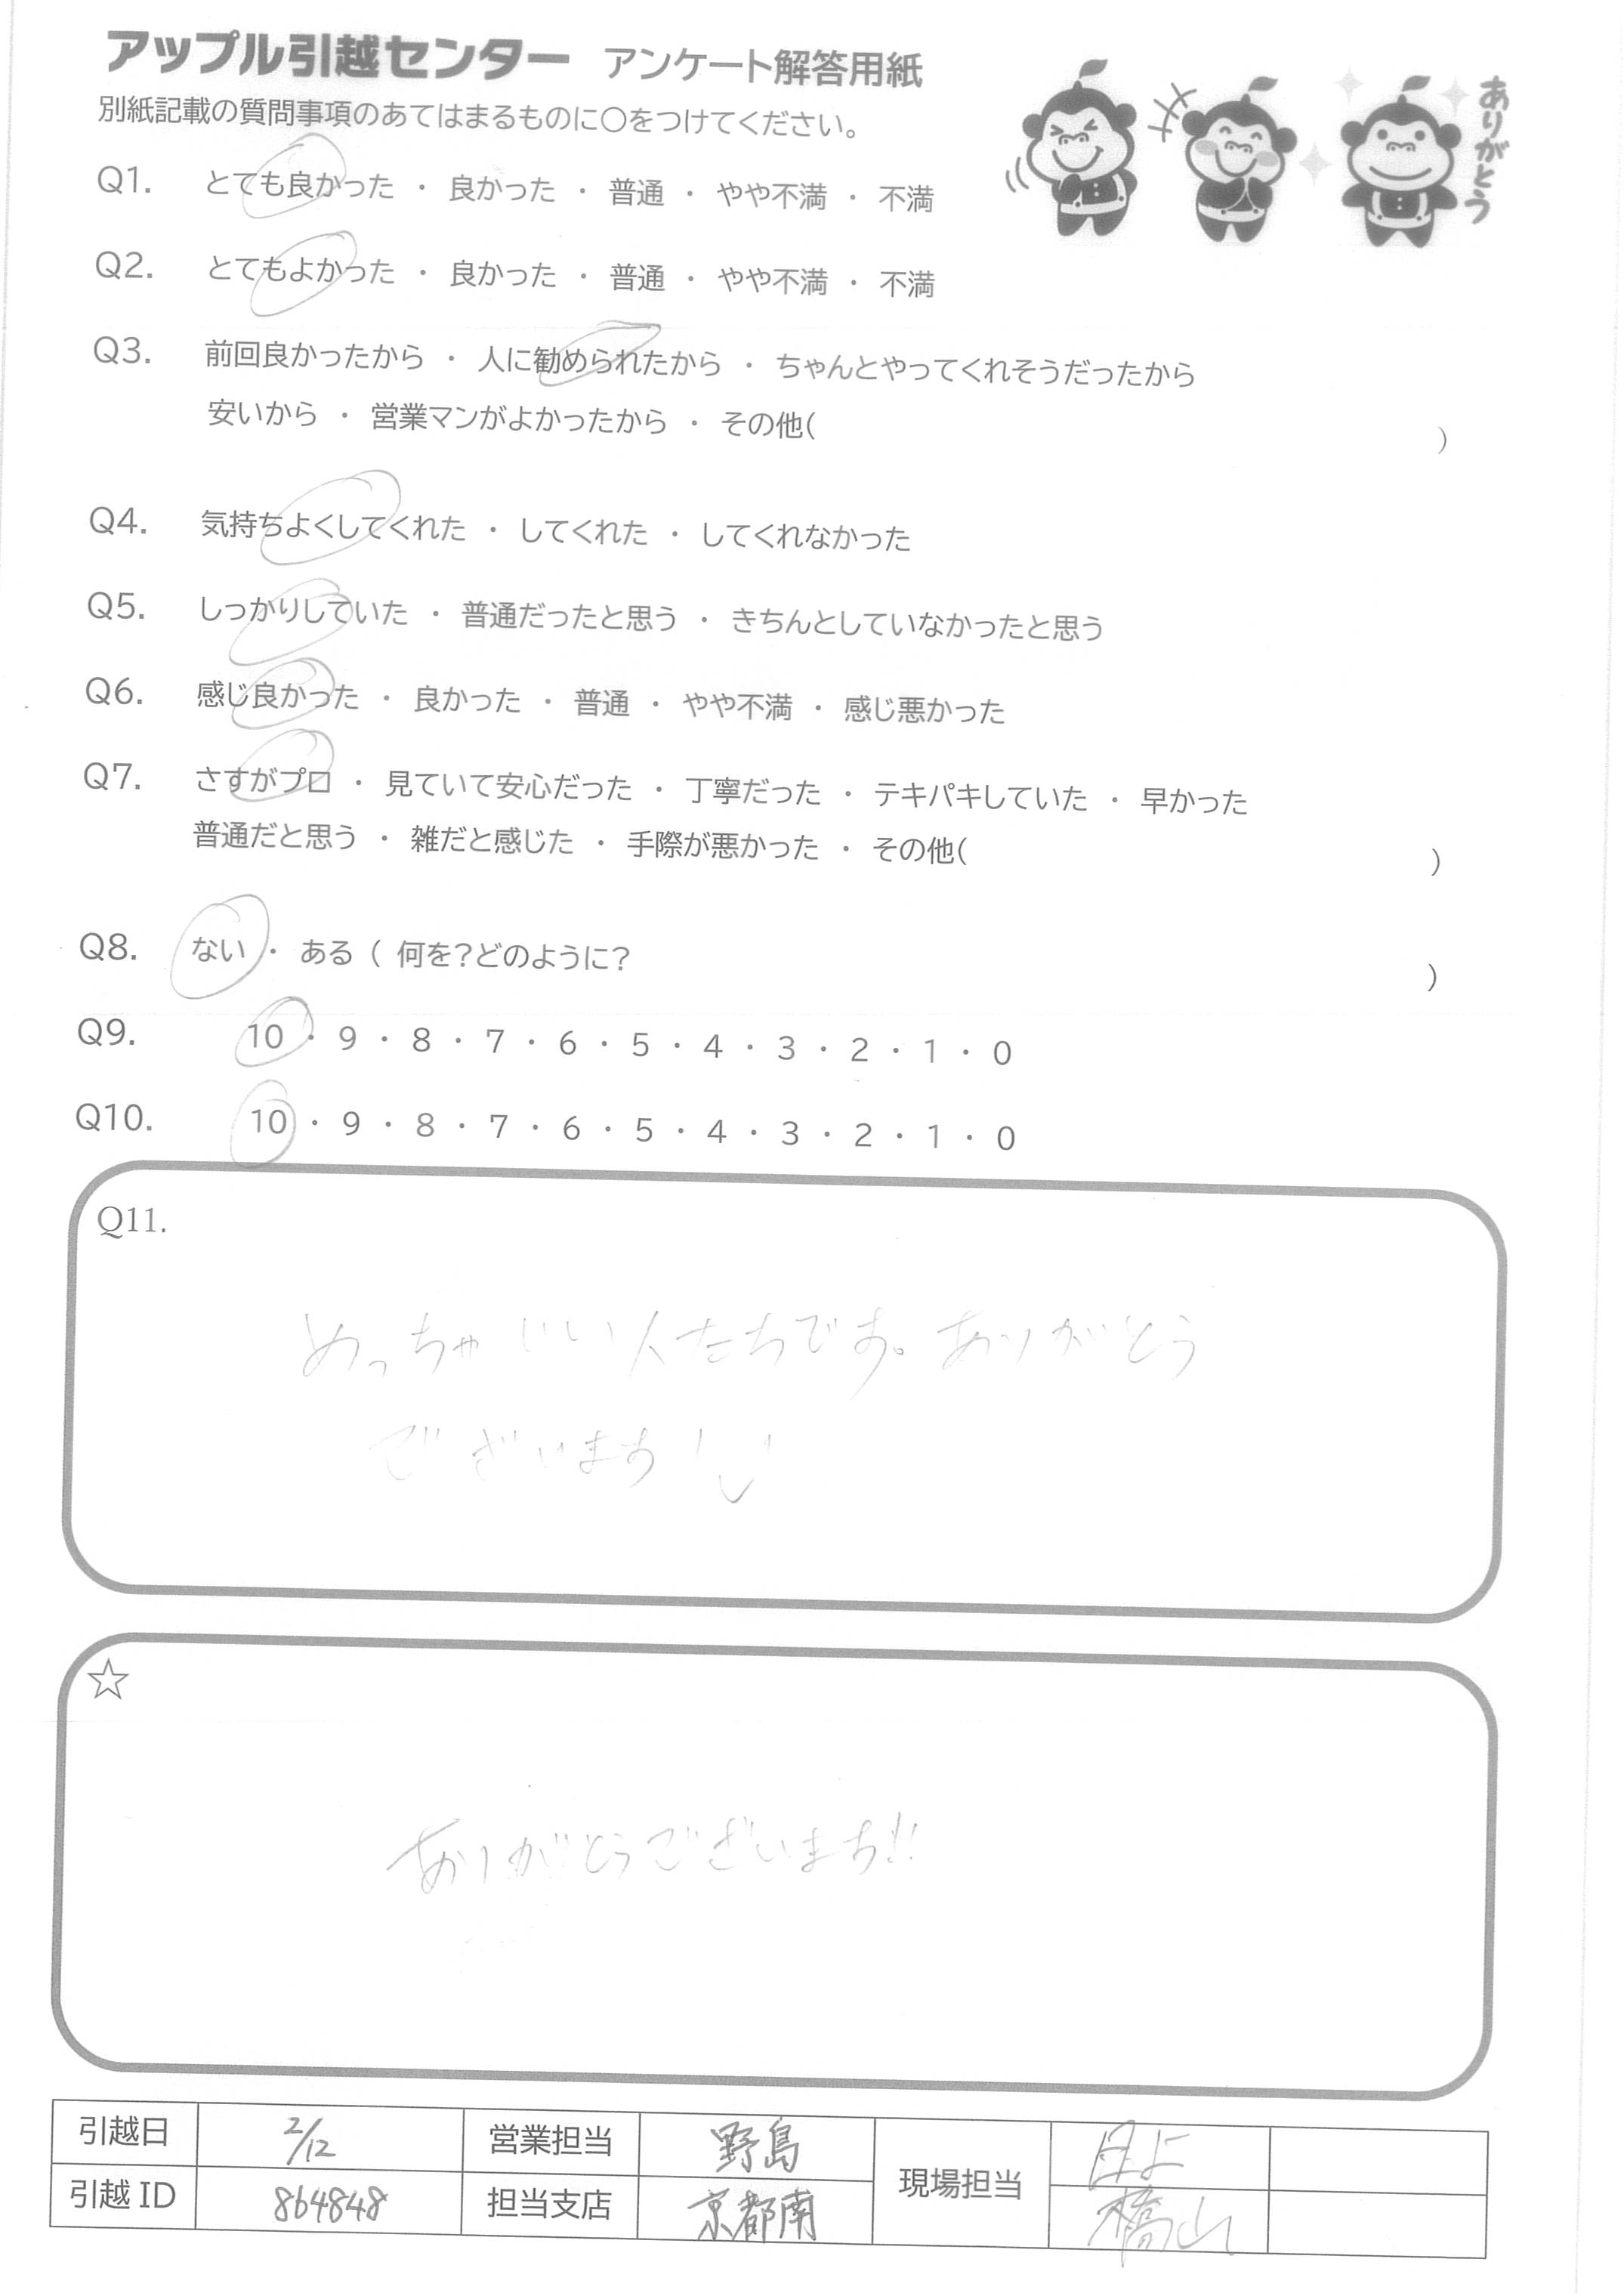 アップル引越センター アンケート解答用紙
別紙記載の質問事項のあてはまるものに○をつけてください。
ありがとう
Q1. とても良かった ・ 良かった ・ 普通 ・ やや不満 ・ 不満
Q2. とてもよかった ・ 良かった ・ 普通 ・ やや不満 ・ 不満
Q3. 前回良かったから ・ 人に勧められたから ・ ちゃんとやってくれそうだったから
安いから ・ 営業マンがよかったから ・ その他( )
Q4. 気持ちよくしてくれた ・ してくれた ・ してくれなかった
Q5. しっかりしていた ・ 普通だったと思う ・ きちんとしていなかったと思う
Q6. 感じ良かった ・ 良かった ・ 普通 ・ やや不満 ・ 感じ悪かった
Q7. さすがプロ ・ 見ていて安心だった ・ 丁寧だった ・ テキパキしていた ・ 早かった
普通だと思う ・ 雑だと感じた ・ 手際が悪かった ・ その他( )
Q8. ない ・ ある ( 何を?どのように? )
Q9. 10 ・ 9 ・ 8 ・ 7 ・ 6 ・ 5 ・ 4 ・ 3 ・ 2 ・ 1 ・ 0
Q10. 10 ・ 9 ・ 8 ・ 7 ・ 6 ・ 5 ・ 4 ・ 3 ・ 2 ・ 1 ・ 0
Q11.
めっちゃいい人たちです。ありがとう
ございます
☆
ありがとうございます!!
引越日 2/12 営業担当 野島 現場担当
引越ID 864848 担当支店 京都南 橋山